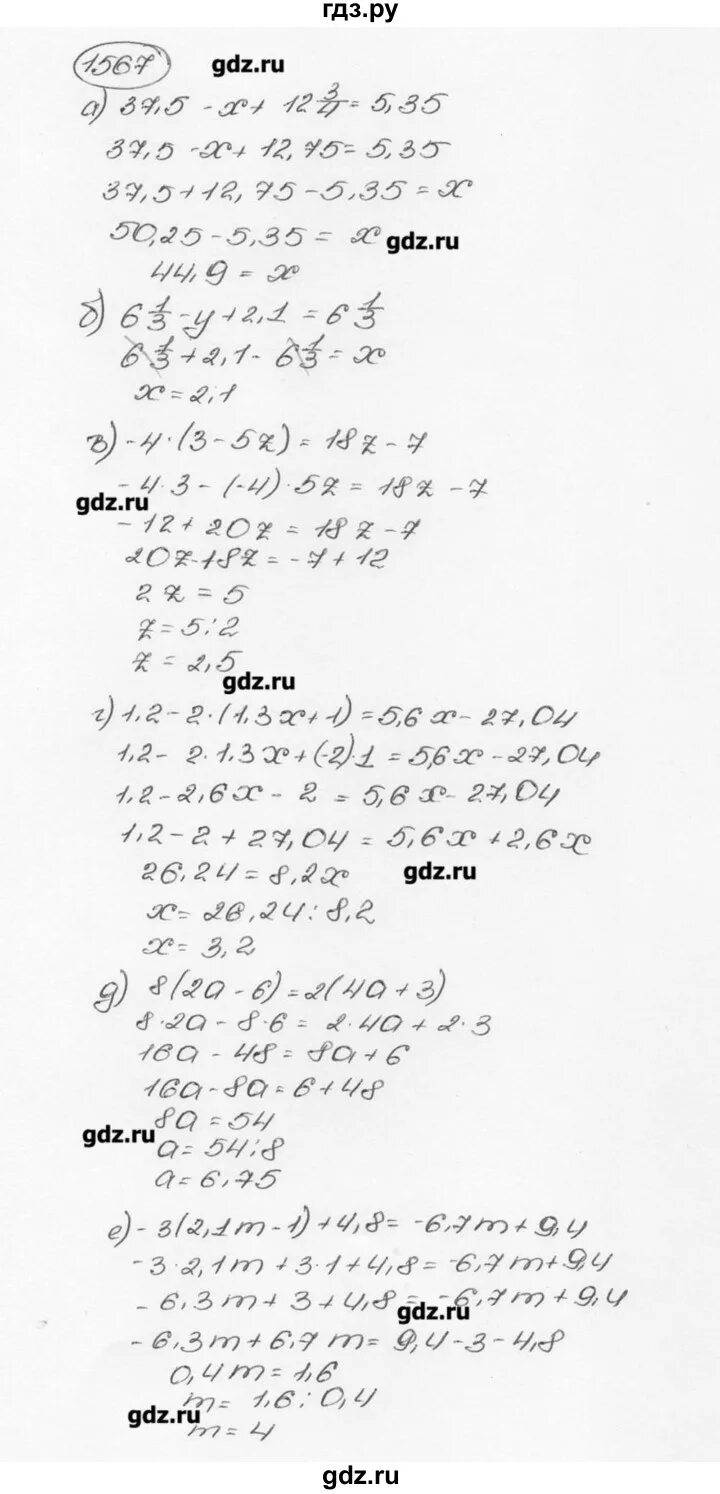 гдз.ру
1567 gdz.ru
а) 37,5 - x + 12 3/4 = 5,35
37,5 - x + 12,75 = 5,35
37,5 + 12,75 - 5,35 = x
50,25 - 5,35 = x gdz.ru
44,9 = x
б) 6 1/3 - y + 2,1 = 6 1/3
6 1/3 + 2,1 - 6 1/3 = x
x = 2,1
в) -4 · (3 - 5z) = 18z - 7
-4 · 3 - (-4) · 5z = 18z - 7
gdz.ru
-12 + 20z = 18z - 7
20z - 18z = -7 + 12
2z = 5
z = 5 : 2
z = 2,5
gdz.ru
г) 1,2 - 2 · (1,3x + 1) = 5,6x - 27,04
1,2 - 2 · 1,3x + (-2) · 1 = 5,6x - 27,04
1,2 - 2,6x - 2 = 5,6x - 27,04
1,2 - 2 + 27,04 = 5,6x + 2,6x
26,24 = 8,2x gdz.ru
x = 26,24 : 8,2
x = 3,2
д) 8(2a - 6) = 2(4a + 3)
8 · 2a - 8 · 6 = 2 · 4a + 2 · 3
16a - 48 = 8a + 6
16a - 8a = 6 + 48
8a = 54
gdz.ru
a = 54 : 8
a = 6,75
е) -3(2,1m - 1) + 4,8 = -6,7m + 9,4
-3 · 2,1m + 3 · 1 + 4,8 = -6,7m + 9,4
-6,3m + 3 + 4,8 = -6,7m + 9,4
gdz.ru
-6,3m + 6,7m = 9,4 - 3 - 4,8
0,4m = 1,6
m = 1,6 : 0,4
gdz.ru
m = 4
gdz.ru